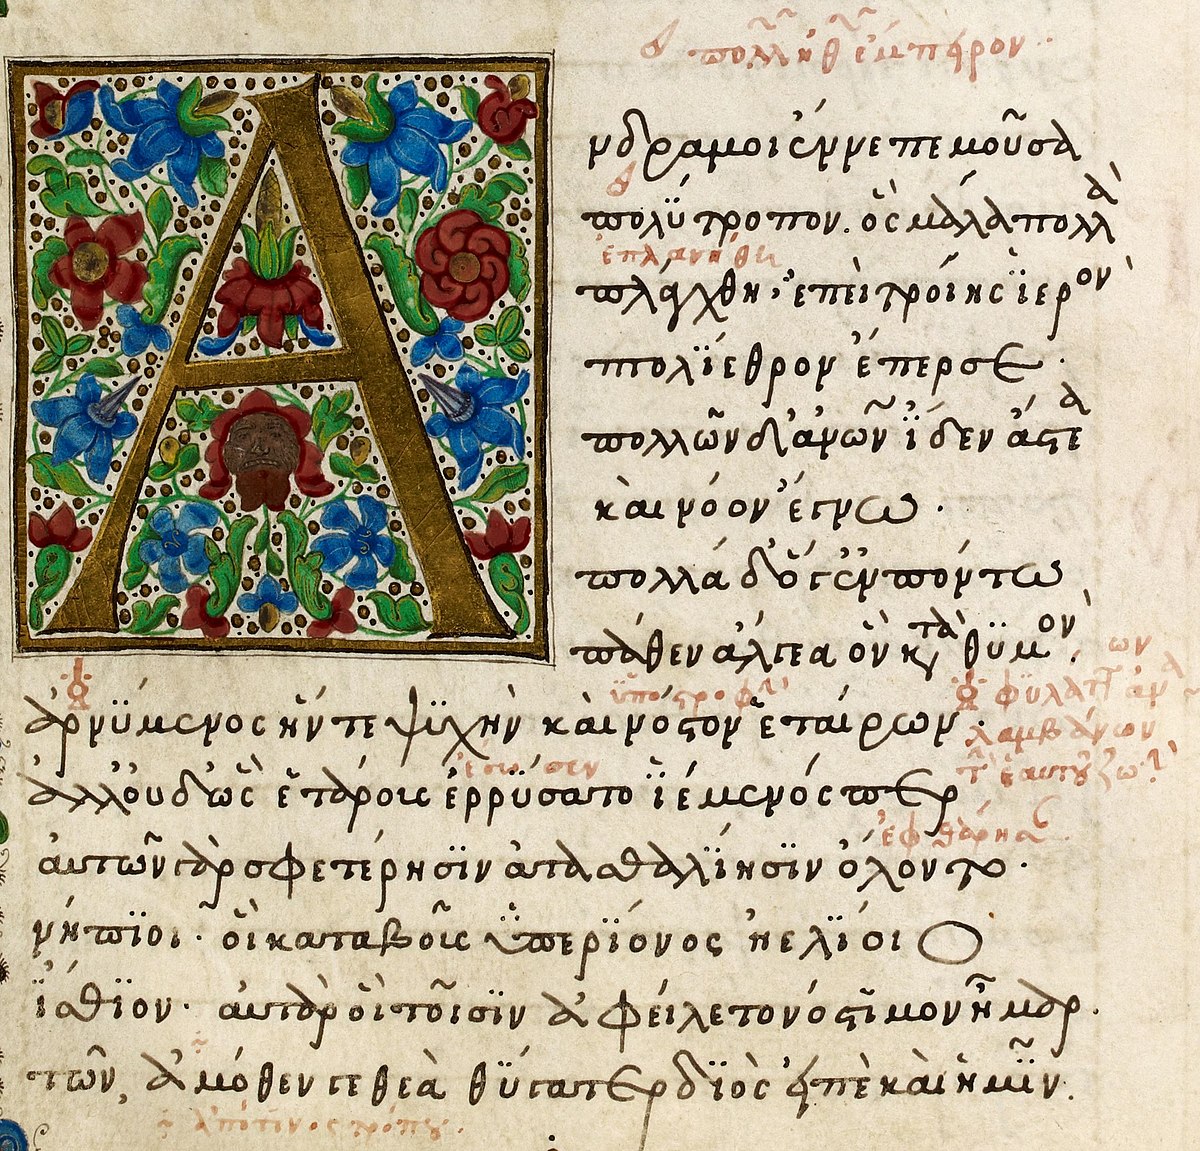 Α
ἔμπειρον
νδραμοι ἔννεπε μοῦσα
πολύτροπον. ὃς μάλα πολλὰ
ἐπλανήθη
πλάγχθη, ἐπεὶ τροίης ἱερὸν
πτολίεθρον ἔπερσε.
πολλῶν δ' ἀνθρώπων ἴδεν ἄστεα
καὶ νόον ἔγνω.
πολλὰ δ' ὅγ' ἐν πόντω
πάθεν ἄλγεα ὃν κατὰ θυμόν.
ὑποστροφὴν
ἀρνύμενος ἥν τε ψυχὴν καὶ νόστον ἑταίρων.
λαμβάνων
ἔσωσεν
ἀλλ' οὐδ' ὣς ἑτάροις ἐρρύσατο ἱέμενός περ
ἐφθάρησαν
αὐτῶν γὰρ σφετέρησιν ἀτασθαλίησιν ὄλοντο.
νήπιοι. οἳ κατὰ βοῦς ὑπερίονος ἠελίοιο
ἤσθιον. αὐτὰρ ὃ τοῖσιν ἀφείλετο νόστιμον ἦμαρ.
τῶν, ἁμόθεν γε θεὰ θύγατερ διὸς εἰπὲ καὶ ἡμῖν.
ἀπό τινος τόπου.